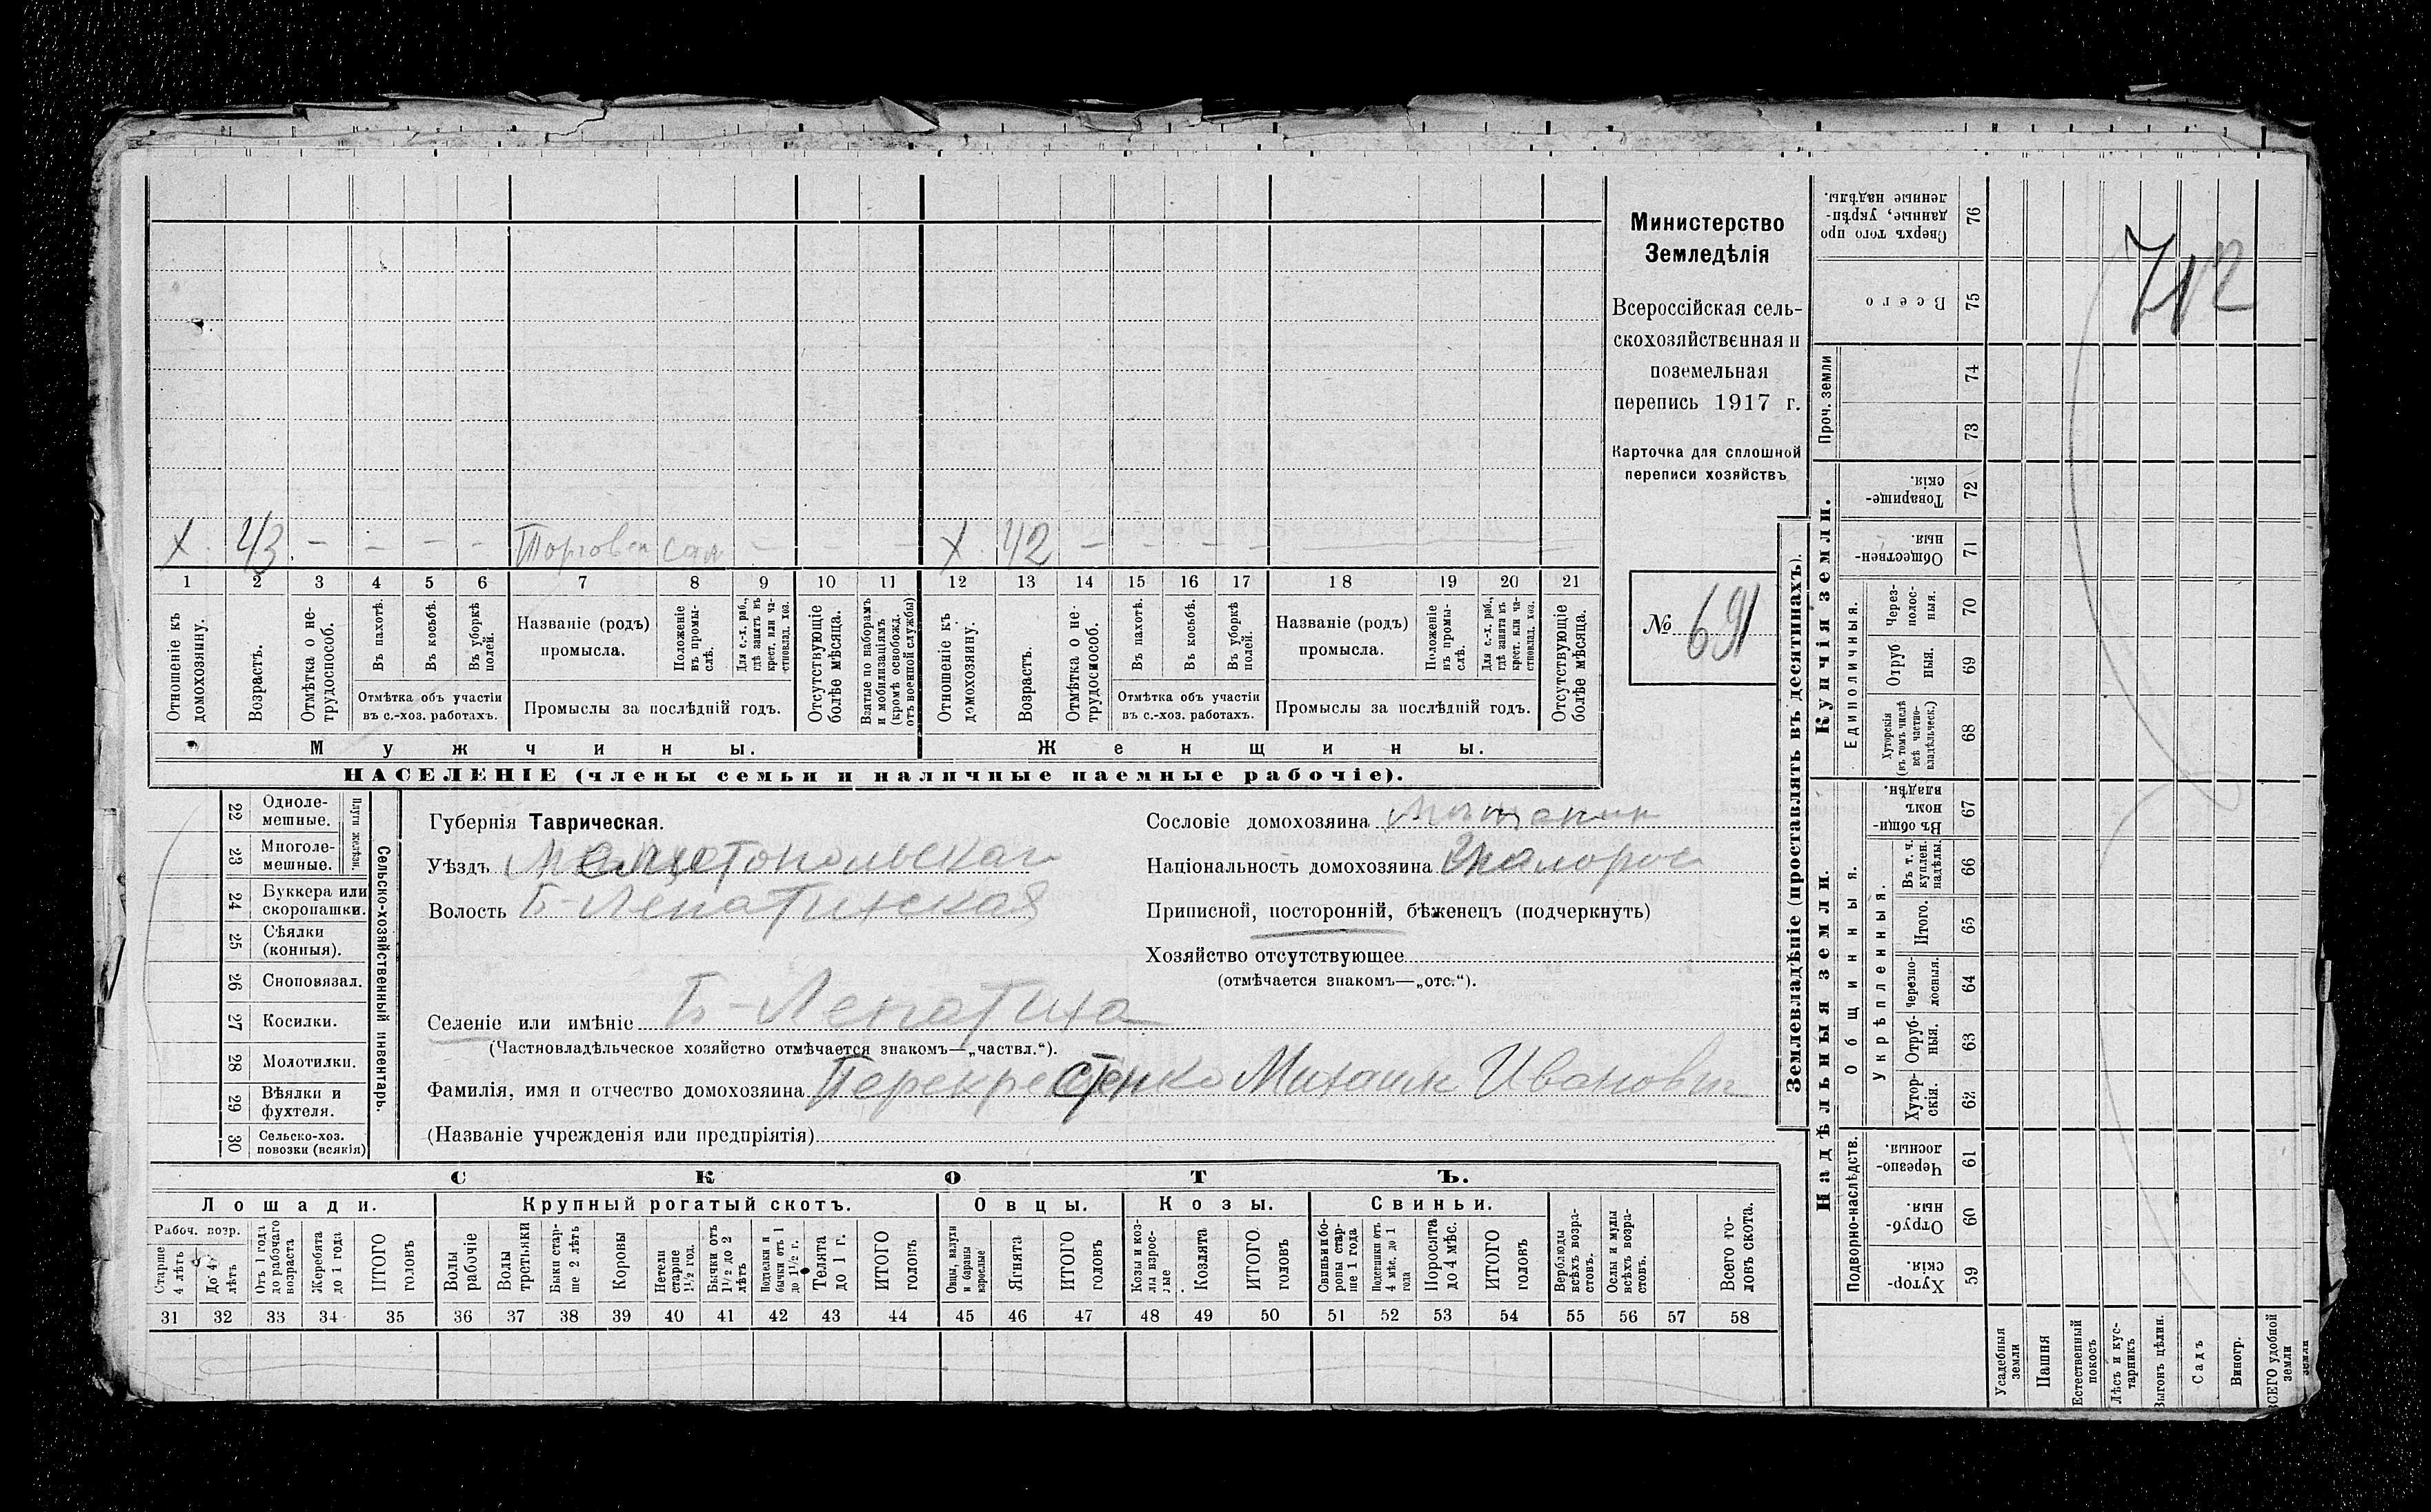 Министерство
Земледѣлія
Всероссійская сель-
скохозяйственная и
поземельная
перепись 1917 г.
Карточка для сплошной
переписи хозяйствъ
№ 691
712
X 43 – – – – Торговец сам – – – X 42 – – – – –
1 2 3 4 5 6 7 8 9 10 11 12 13 14 15 16 17 18 19 20 21
Отношеніе къ домохозяину.
Возрастъ.
Отмѣтка о не-трудоспособ.
Въ пахотѣ.
Въ косьбѣ.
Въ уборкѣ полей.
Отмѣтка объ участіи въ с.-хоз. работахъ.
Названіе (родъ) промысла.
Положеніе въ промы-слѣ.
Для с.-х. раб., гдѣ занятъ въ крест. или ча-стновлад. хоз.
Промыслы за послѣдній годъ.
Отсутствующіе болѣе мѣсяца.
Взятые по наборамъ и мобилизаціямъ (кромѣ освобожд. отъ военной службы)
Отношеніе къ домохозяину.
Возрастъ.
Отмѣтка о не-трудоспособ.
Въ пахотѣ.
Въ косьбѣ.
Въ уборкѣ полей.
Отмѣтка объ участіи въ с.-хоз. работахъ.
Названіе (родъ) промысла.
Положеніе въ промы-слѣ.
Для с.-х. раб., гдѣ занята въ крест. или ча-стновлад. хоз.
Промыслы за послѣдній годъ.
Отсутствующіе болѣе мѣсяца.
Мужчины. Женщины.
НАСЕЛЕНІЕ (члены семьи и наличные наемные рабочіе).
22 Одноле-мешные.
23 Многоле-мешные.
Плуги желѣзн.
24 Буккера или скоропашки.
25 Сѣялки (конныя).
26 Сноповязал.
27 Косилки.
28 Молотилки.
29 Вѣялки и фухтеля.
30 Сельско-хоз. повозки (всякія)
Сельско-хозяйственный инвентарь.
Губернія Таврическая.
Уѣздъ Мелитопольскаго
Волость Б-Лепатихская
Селеніе или имѣніе Б-Лепатиха
(Частновладѣльческое хозяйство отмѣчается знакомъ—„частвл.“).
Фамилія, имя и отчество домохозяина Перекрестенко Михаил Иванович
(Названіе учрежденія или предпріятія)
Сословіе домохозяина мѣщанин
Національность домохозяина малорос
Приписной, посторонній, бѣженецъ (подчеркнуть)
Хозяйство отсутствующее
(отмѣчается знакомъ—„отс.“).
СКОТЪ.
Лошади. Крупный рогатый скотъ. Овцы. Козы. Свиньи.
Рабоч. возр.
Старше 4 лѣтъ
До 4 лѣтъ
Отъ 1 года до рабочаго возраста
Жеребята до 1 года
ИТОГО головъ
Волы рабочіе
Волы третьяки
Быки стар-ше 2 лѣтъ
Коровы
Нетели старше 1½ год.
Бычки отъ 1½ до 2 лѣтъ
Подтелки и бычки отъ 1 до 1½ г.
Телята до 1 г.
ИТОГО головъ
Овцы, валухи и бараны взрослые
Ягнята
ИТОГО головъ
Козы и коз-лы взрос-лые
Козлята
ИТОГО головъ
Свиньи и бо-ровы стар-ше 1 года
Подсвинки отъ 4 мѣс. до 1 года
Поросята до 4 мѣс.
ИТОГО головъ
Верблюды всѣхъ возра-стовъ.
Ослы и мулы всѣхъ возра-стовъ.
Всего го-ловъ скота.
31 32 33 34 35 36 37 38 39 40 41 42 43 44 45 46 47 48 49 50 51 52 53 54 55 56 57 58
Землевладѣніе (проставлять въ десятинахъ).
Надѣльныя земли. Купчія земли. Проч. земли
Подворно-наслѣдств.
Общинныя.
Укрѣпленныя.
Единоличныя.
Хутор-скія. 59
Отруб-ныя. 60
Черезпо-лосныя. 61
Хутор-скія. 62
Отруб-ныя. 63
Черезпо-лосныя. 64
Итого. 65
Въ т. ч. куплен. надѣлы. 66
Въ общи-номъ владѣн. 67
Хуторскія (въ томъ числѣ всѣ частно-владѣльческ.) 68
Отруб ныя. 69
Через-полос-ныя. 70
Обществен-ныя. 71
Товарище-скія. 72
73
74
Всего 75
Сверхъ того про данные, укрѣп-ленные надѣлы. 76
Усадебныя земли
Пашня
Естественный покосъ
Лѣсъ и кус-тарникъ
Выгонъ цѣлин.
Садъ
Виногр.
ВСЕГО удобной земли